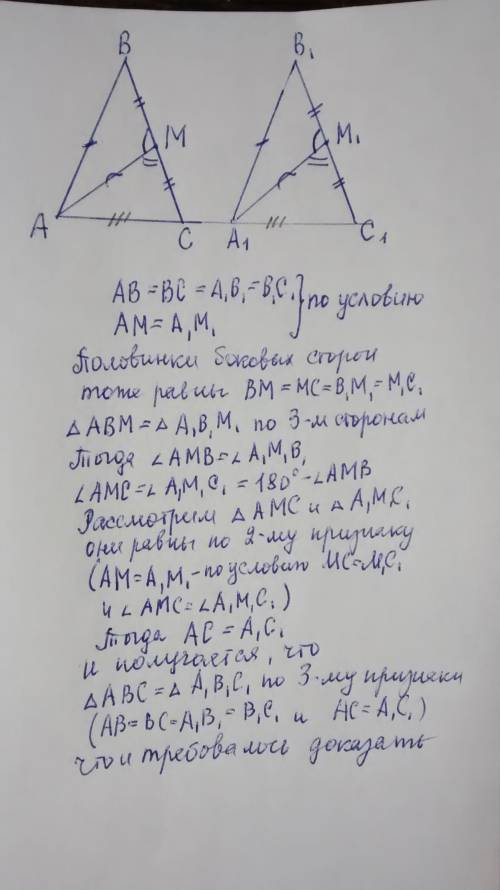 B
B₁
M
M₁
A
C
A₁
C₁
AB = BC = A₁B₁ = B₁C₁ } по условию
AM = A₁M₁
Половинки боковых сторон
тоже равны BM = MC = B₁M₁ = M₁C₁
△ABM = △A₁B₁M₁ по 3-м сторонам
Тогда ∠AMB = ∠A₁M₁B₁
∠AMC = ∠A₁M₁C₁ = 180° - ∠AMB
Рассмотрим △AMC и △A₁M₁C₁
они равны по 2-му признаку
(AM = A₁M₁ - по условию MC = M₁C₁
и ∠AMC = ∠A₁M₁C₁)
Тогда AC = A₁C₁
и получается, что
△ABC = △A₁B₁C₁ по 3-му признаки
(AB = BC = A₁B₁ = B₁C₁ и AC = A₁C₁)
что и требовалось доказать